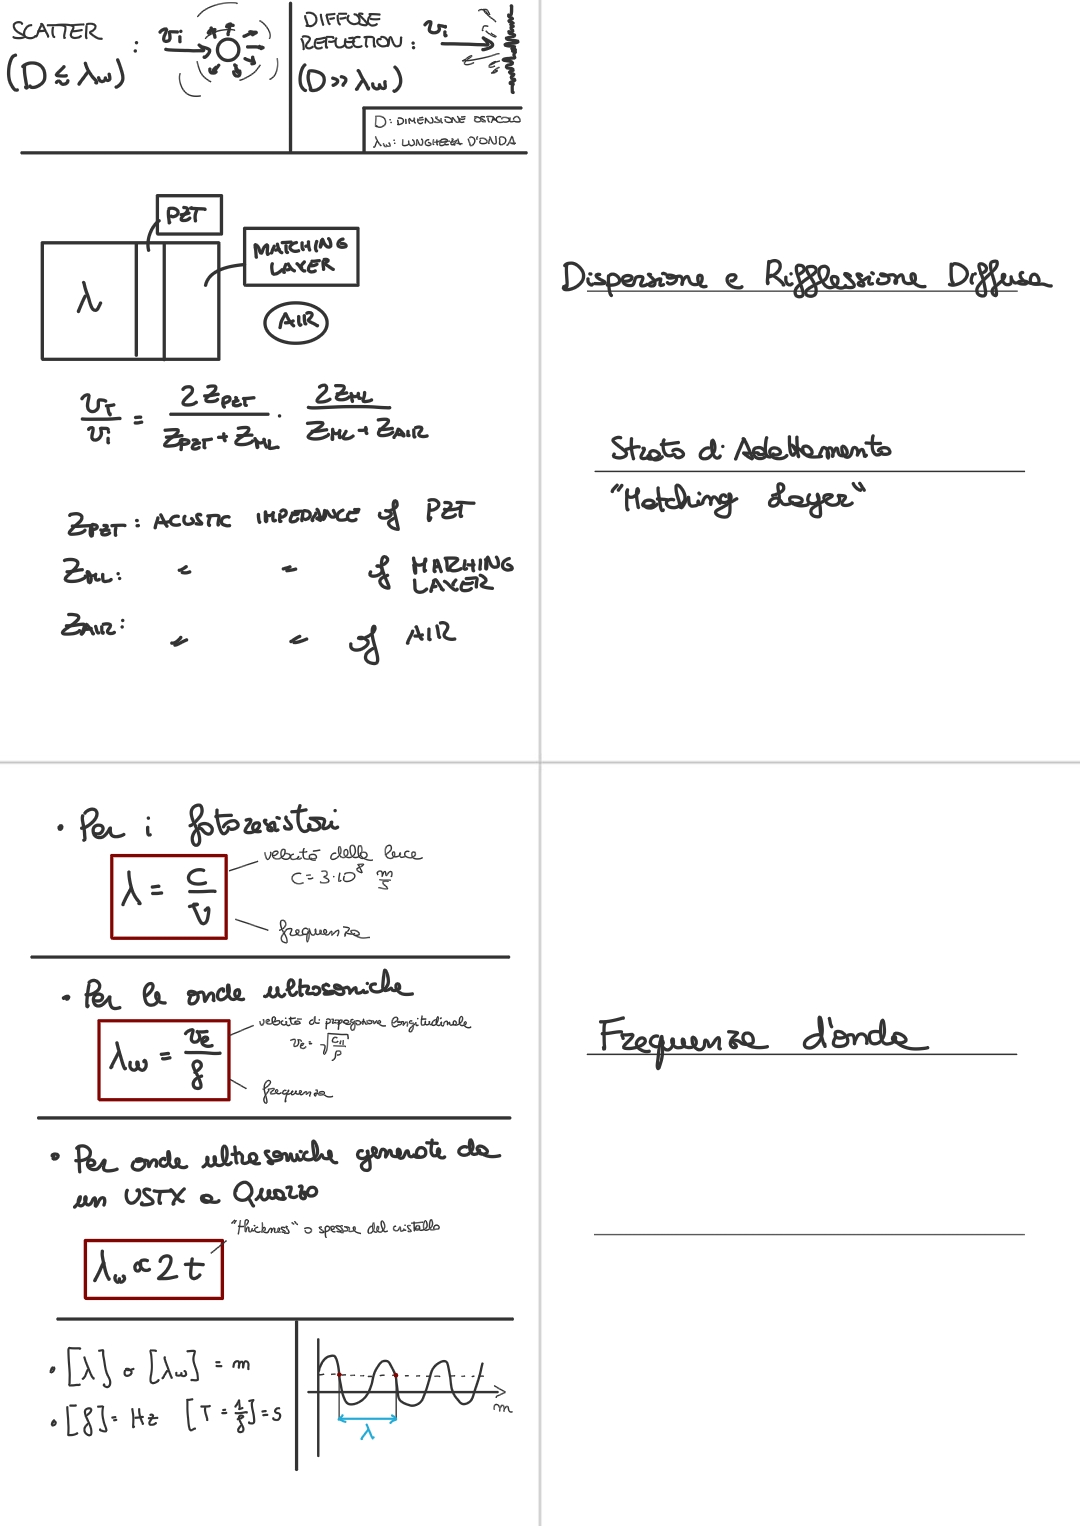 SCATTER : vi
(D ≲ λw)
DIFFUSE vi
REFLECTION :
(D >> λw)
D: DIMENSIONE OSTACOLO
λw: LUNGHEZZA D'ONDA
PZT
MATCHING
LAYER
λ
AIR
vT/vi = 2 ZPZT/(ZPZT + ZML) · 2 ZML/(ZML + ZAIR)
ZPZT : ACUSTIC IMPEDANCE of PZT
ZML: " " of MARCHING
LAYER
ZAIR: " " of AIR
Dispersione e Rifflessione Diffusa
Strato di Adattamento
"Matching Layer"
• Per i fotoresistori
λ = c/ν
velocità della luce
C = 3·10⁸ m/s
frequenza
• Per le onde ultrasoniche
λw = vℓ/f
velocità di propagazione longitudinale
vℓ = √(C11/ρ)
frequenza
• Per onde ultrasoniche generate da
un USTX a Quarzo
"thickness" o spessore del cristallo
λw ∝ 2 t
• [λ] o [λw] = m
• [f] = Hz [T = 1/f] = s
m
λ
Frequenza d'onda